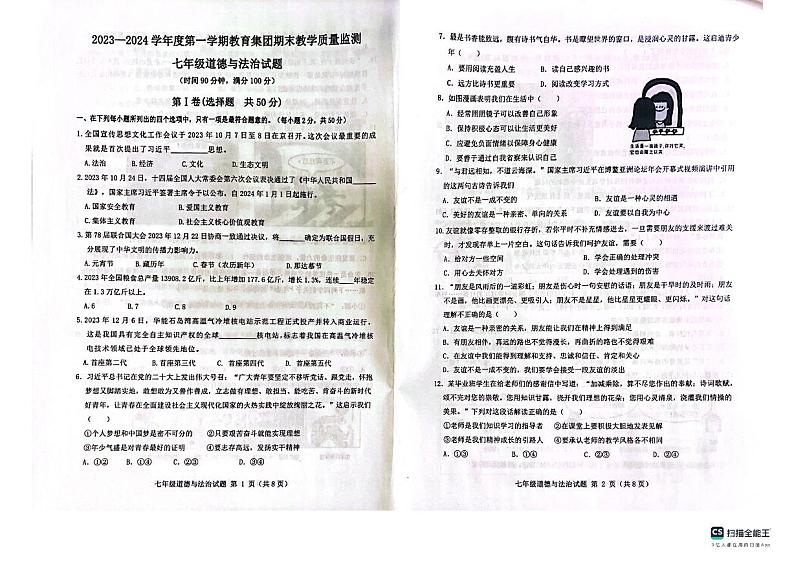 2023—2024 学年度第一学期教育集团期末教学质量监测
七年级道德与法治试题
(时间 90 分钟，满分 100 分)
第 I 卷(选择题 共 50 分)
一、在下列每小题所列出的四个选项中，只有一项是最符合题意的。(每小题 2 分，共 50 分)
1. 全国宣传思想文化工作会议于 2023 年 10 月 7 日至 8 日在京召开。这次会议最重要的成
果就是首次提出了习近平______思想。
A. 法治 B. 经济 C. 文化 D. 生态文明
2. 2023 年 10 月 24 日，十四届全国人大常委会第六次会议表决通过了《中华人民共和国______
法》，国家主席习近平签署主席令予以公布，自 2024 年 1 月 1 日起施行。
A. 国家安全教育 B. 爱国主义教育
C. 集体主义教育 D. 社会主义核心价值观教育
3. 第 78 届联合国大会 2023 年 12 月 22 日协商一致通过决议，将______确定为联合国假日，充
分展现了中华文明的传播力影响力。
A. 元宵节 B. 藏历年 C. 春节（农历新年） D. 那达慕节
4. 2023 年全国粮食总产量 13908.2 亿斤，比上年增加 177.6 亿斤，增长 1.3%，连续____年稳定
在 1.3 万亿斤以上。
A. 6 B. 7 C. 8 D. 9
5. 2023 年 12 月 6 日，华能石岛湾高温气冷堆核电站示范工程正式投产并转入商业运行，
这是我国具有完全自主知识产权的全球________核电站，标志着我国在高温气冷堆核
电技术领域已处于全球领先地位。
A. 首座第二代 B. 首座第三代 C. 首座第四代 D. 首座第五代
6. 习近平总书记在党的二十大上发出伟大号召：“广大青年要坚定不移听党话、跟党走，怀抱
梦想又脚踏实地，敢想敢为又善作善成，立志做有理想、敢担当、能吃苦、肯奋斗的新时代
好青年，让青春在全面建设社会主义现代化国家的火热实践中绽放绚丽之花。”这启示我们
（ ）
①个人梦想和中国梦是密不可分的 ②只要艰苦奋斗就能实现理想
③年少气盛是对青春最好的证明 ④要志存高远，发扬实干精神
A. ①② B. ①④ C. ②③ D. ③④
七年级道德与法治试题 第 1 页（共 8 页）
7. 最是书香能致远，腹有诗书气自华。书是瞭望世界的窗口，是浸润心灵的甘露。这启迪青少
年（ ）
A. 要用阅读充盈人生 B. 读自己感兴趣的书
C. 远方比诗书更重要 D. 阅读改变学习方式
8. 如图漫画表明我们在生活中（ ）
A. 经常照照镜子可以改善自己形象
B. 保持积极心态可以让生活更美好
C. 应避免负面情绪以保障身心健康
D. 要善于通过自我省察来认识自己
生活是一面镜子，你对它笑，
它也会随之以笑
9. “与君远相知，不道云海深。”国家主席习近平在博鳌亚洲论坛年会开幕式视频演讲中引用
的这两句古诗告诉我们
A. 友谊不是一成不变的 B. 友谊是一种心灵的相遇
C. 美好的友谊是一种亲密、单向的关系 D. 友谊要以自我为中心
10. 友谊就像零存整取的银行存折，若你平时不补充情感进去，一旦需要朋友的支援来渡过难关
时，才发现存单上一片空白。这句话告诉我们呵护友谊，需要（ ）
A. 给对方一些空间 B. 学会正确的处理冲突
C. 用心去关怀对方 D. 学会正确对待交友中受到的伤害
11. “朋友是风雨后的一道彩虹；朋友是伤心时一句安慰的话语；朋友是干旱时的及时雨；朋友
不是画，他比画更漂亮、更吸引人；朋友不是星星，他比星星更耀眼、更闪烁。”对这句话
理解不正确的是（ ）
A. 友谊是一种亲密的关系，朋友能让我们在精神上得到满足
B. 有朋友相伴，再远的路也不觉得漫长，再曲折的路也不觉得艰难
C. 在朋友的交往中，我们能更深刻地体悟到理解、支持、忠诚和信任、肯定和关心
D. 友谊不是一成不变的，我们要学会接受一段友谊的淡出
12. 某毕业班学生在给老师们的感谢信中写道：“加减乘除，算不尽您作出的奉献；诗词歌赋，
颂不完对您的崇敬。您用知识甘露，浇开我们理想的花朵；您用心灵清泉，润育我们情操的
美果。”下列对这段话解读正确的是（ ）
①老师是我们知识学习的指导者 ②在课堂上要积极大胆地发表见解
③老师是我们精神成长的引路人 ④要承认老师的教学风格各不相同
A. ①② B. ①③ C. ②④ D. ③④
七年级道德与法治试题 第 2 页（共 8 页）
CS 扫描全能王
3亿人都在用的扫描App